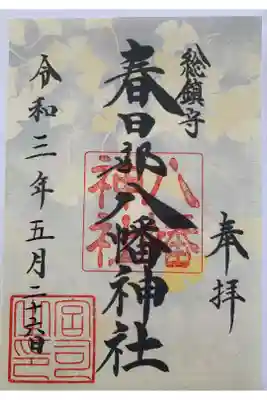 奉拝
総鎮守
春日部八幡神社
八幡神社
令和三年五月二十六日
宮司之印